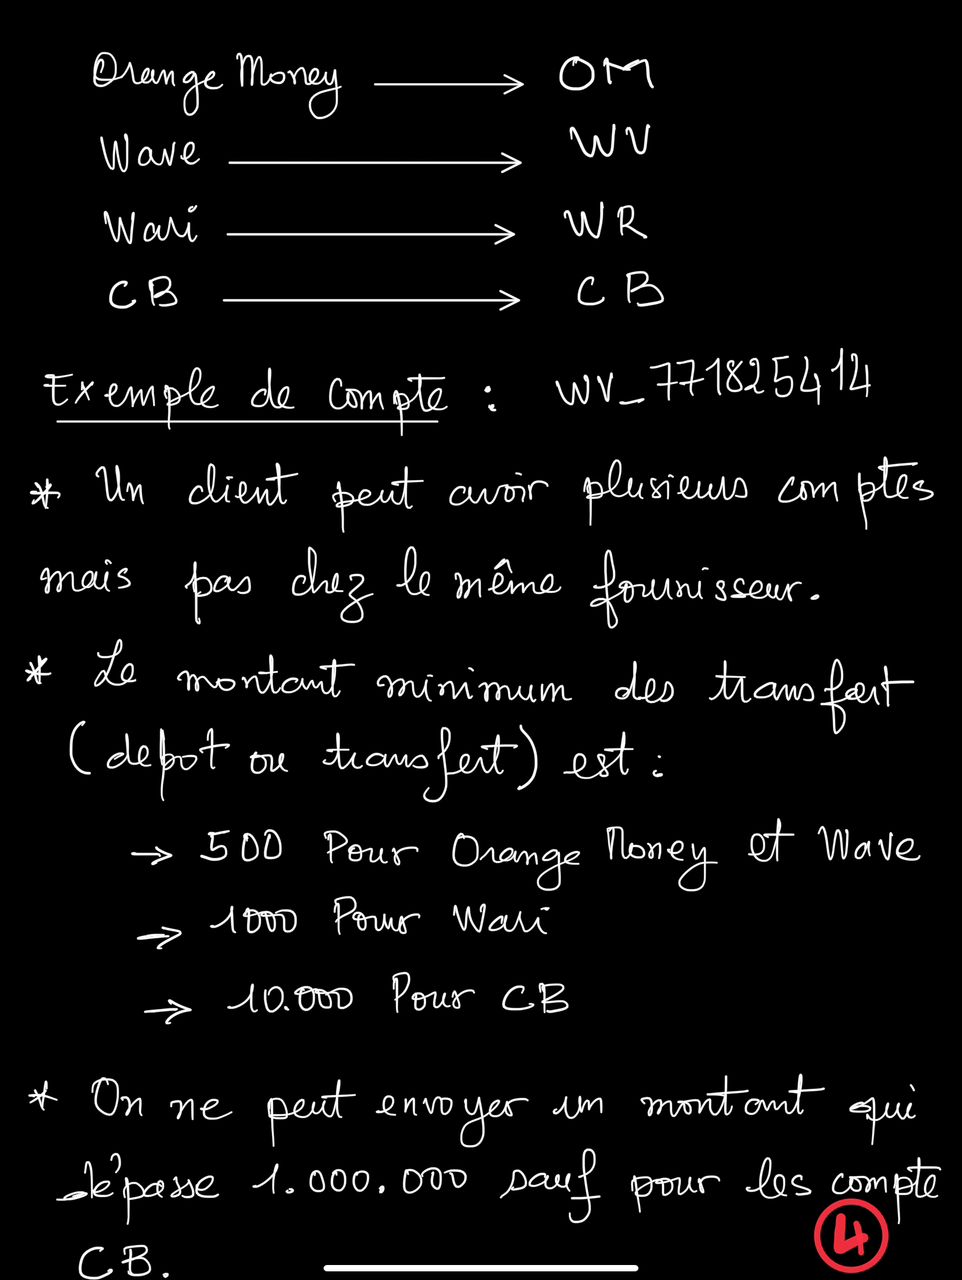 Orange Money → OM
Wave → WV
Wari → WR
CB → CB
Exemple de compte : WV_771825414
* Un client peut avoir plusieurs comptes
mais pas chez le même fournisseur.
* Le montant minimum des transfert
(depot ou transfert) est :
→ 500 Pour Orange Money et Wave
→ 1000 Pour Wari
→ 10.000 Pour CB
* On ne peut envoyer un montant qui
dépasse 1.000.000 sauf pour les compte
CB.
4